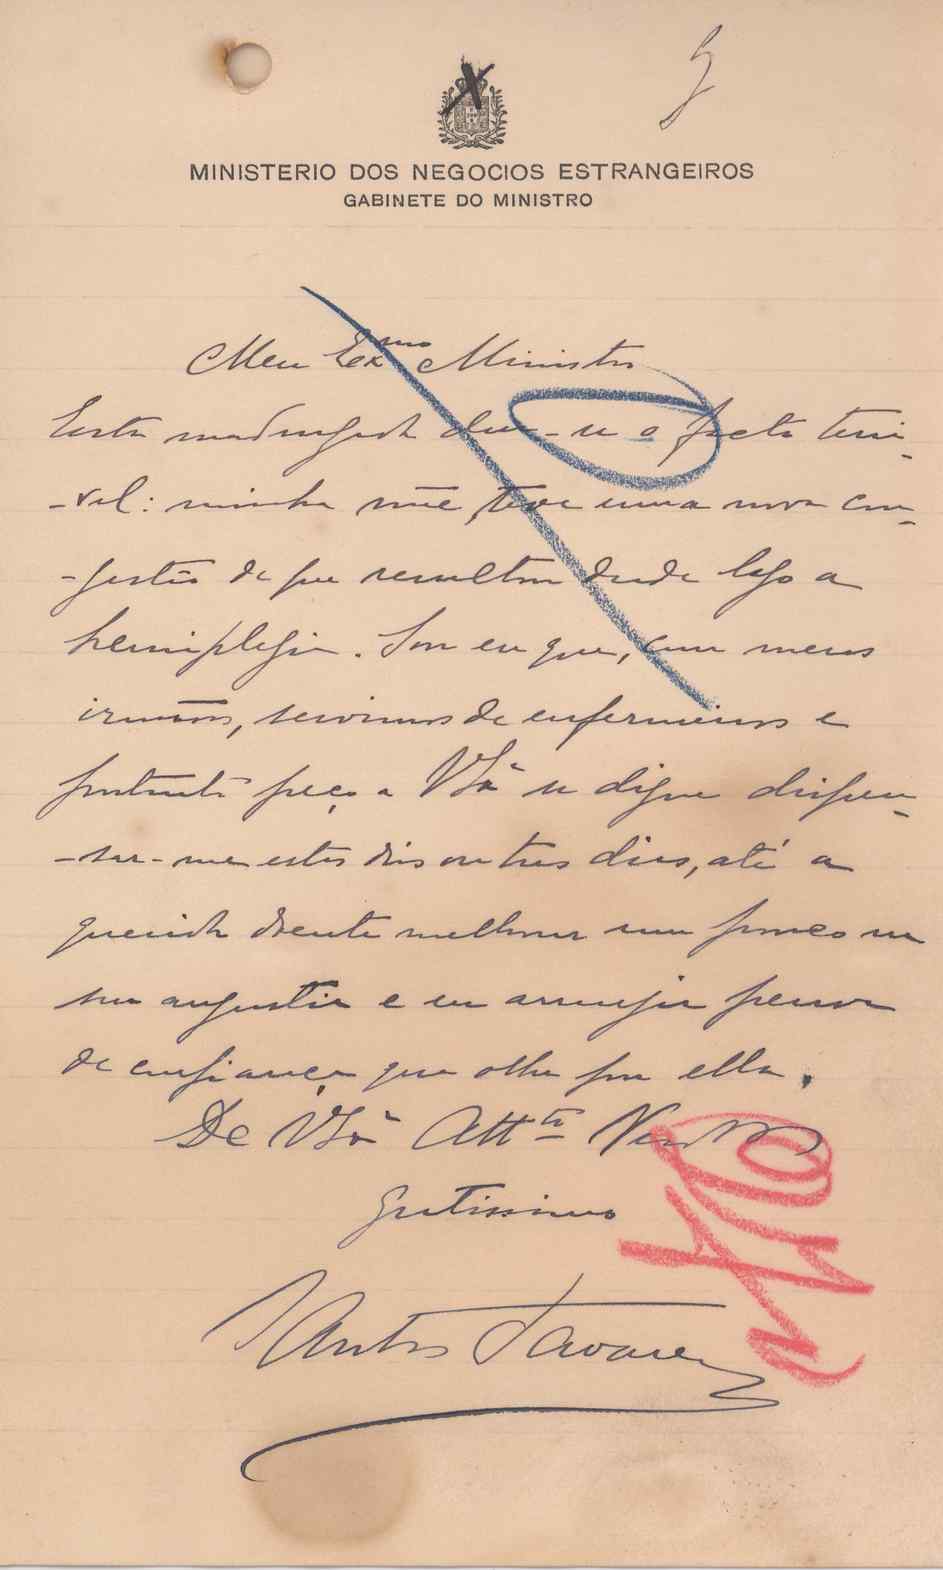 MINISTERIO DOS NEGOCIOS ESTRANGEIROS
GABINETE DO MINISTRO
Meu Exmo Ministro
Esta madrugada deu-se o facto terri-
-vel: minha mãe teve uma nova con-
-gestão de que resultou desde logo a
hemiplegia. Sou eu que, com meus
irmãos, servimos de enfermeiros e
portanto peço a VExª se digne dispen-
-sar-me estes dois ou tres dias, até a
querida doente melhorar um pouco na
sua angustia e eu arranjar pessoa
de confiança que olhe por ella.
De VExª Attto Vendor
gratissimo
Santos Tavares